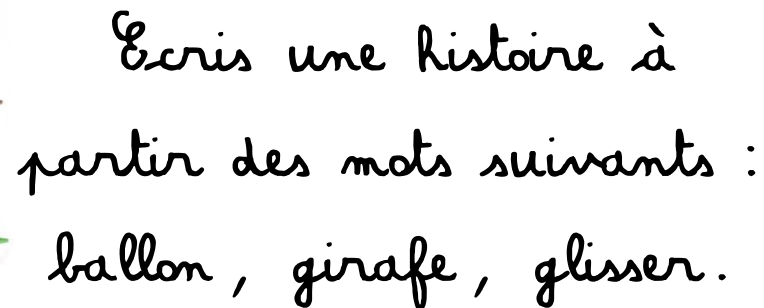 Ecris une histoire à
partir des mots suivants :
ballon, girafe, glisser.